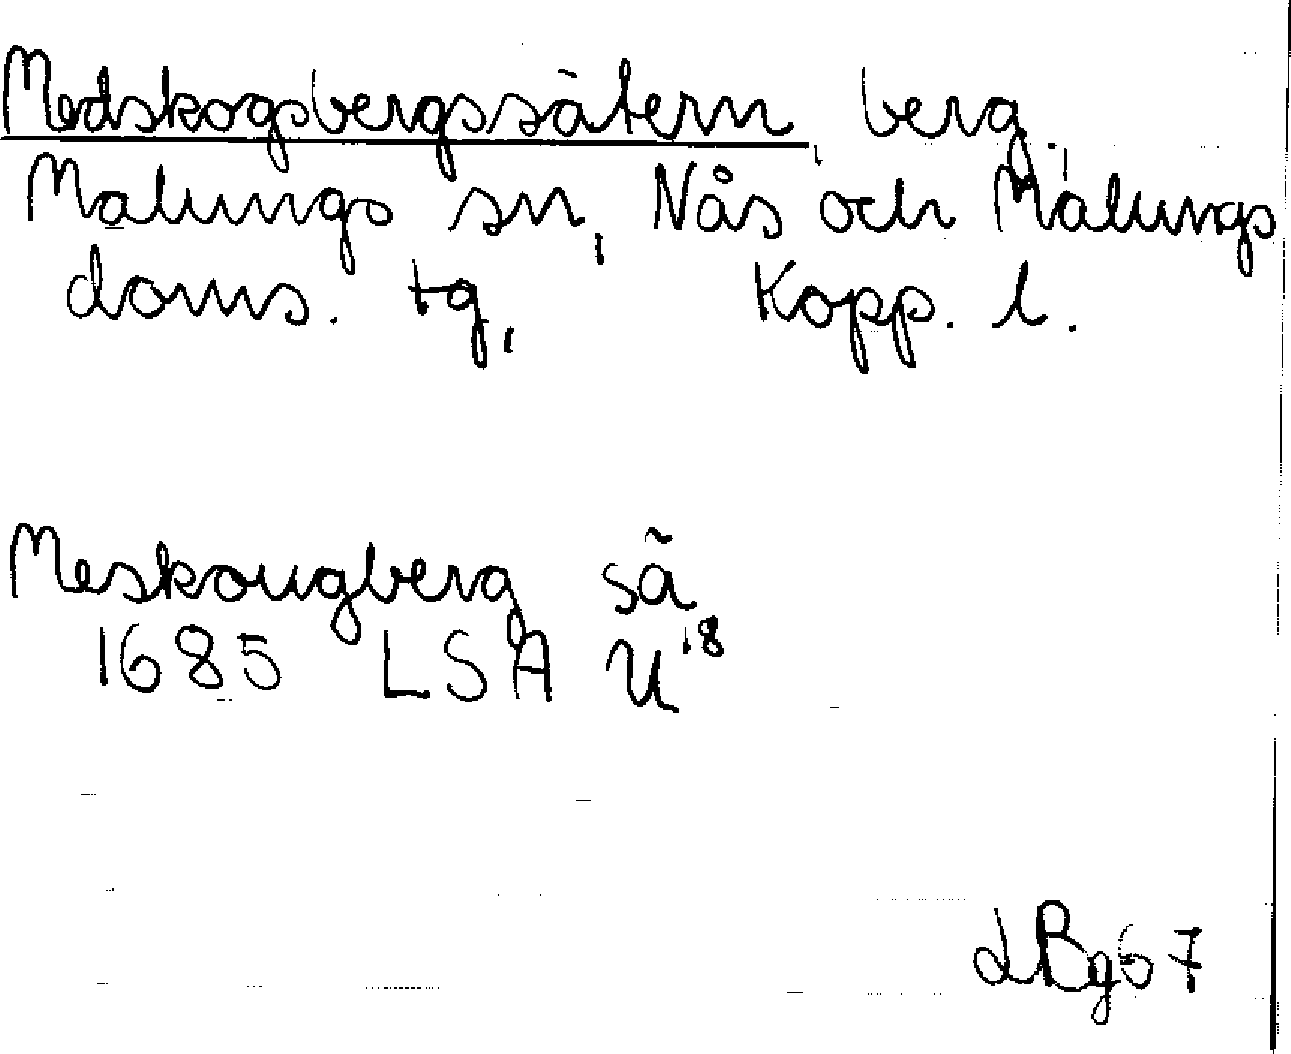 Medskogsbergssätern, berg,
Malungs sn, Nås och Malungs
doms. tg, Kopp. l.
Meskougberg sä
1685 LSA U¹⁸
LBg67